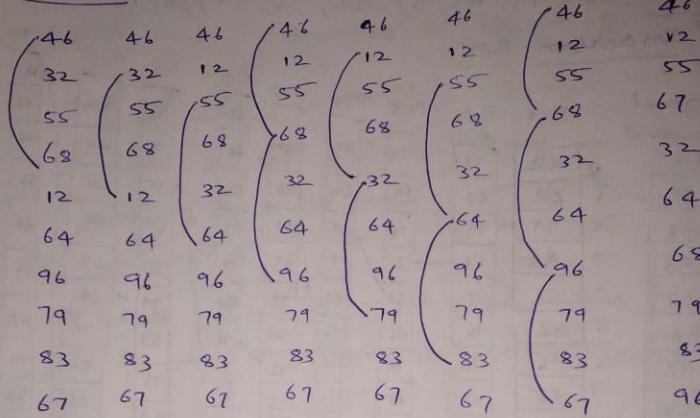 46 46 46 46 46 46 46 46
32 32 12 12 12 12 12 12
55 55 55 55 55 55 55 55
68 68 68 68 68 68 68 67
12 12 32 32 32 32 32 32
64 64 64 64 64 64 64 64
96 96 96 96 96 96 96 68
79 79 79 79 79 79 79 79
83 83 83 83 83 83 83
67 67 67 67 67 67 67